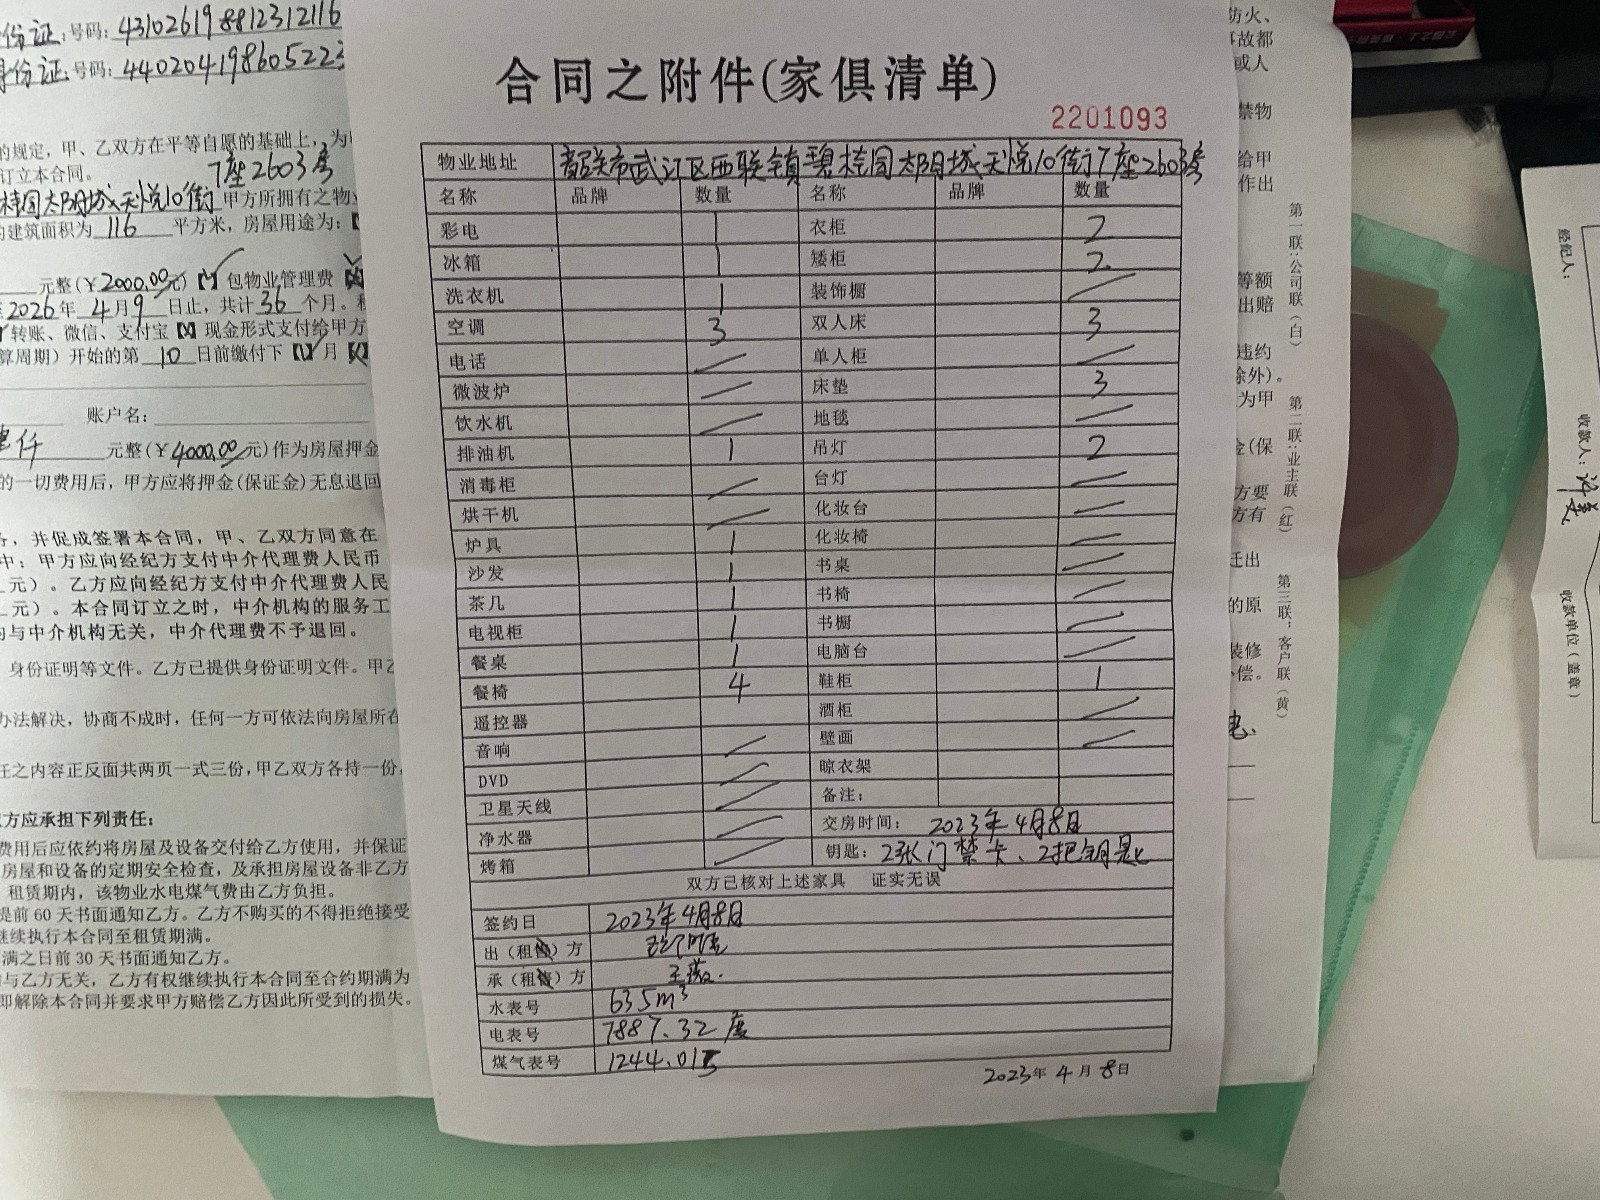 份证:号码:431026198812312116
身份证:号码:44020419860522
的规定,甲、乙双方在平等自愿的基础上,为
订立本合同。 7座2603房
桂园太阳城天悦10街 甲方所拥有之物业
建筑面积为 116 平方米,房屋用途为:【
元整(¥2000.00元)【√】包物业管理费
2026年 4月9 日止,共计36 个月。
转账、微信、支付宝【X】现金形式支付给甲方
算周期)开始的第 10 日前缴付下【√】月
账户名:
肆仟 元整(¥4000.00元)作为房屋押金
的一切费用后,甲方应将押金(保证金)无息退回
,并促成签署本合同,甲、乙双方同意在
中:甲方应向经纪方支付中介代理费人民币
元)。乙方应向经纪方支付中介代理费人民
元)。本合同订立之时,中介机构的服务工
与中介机构无关,中介代理费不予退回。
身份证明等文件。乙方已提供身份证明文件。甲乙
办法解决,协商不成时,任何一方可依法向房屋所在
之内容正反面共两页一式三份,甲乙双方各持一份,
方应承担下列责任:
费用后应依约将房屋及设备交付给乙方使用,并保证
房屋和设备的定期安全检查,及承担房屋设备非乙方
租赁期内,该物业水电煤气费由乙方负担。
提前60天书面通知乙方。乙方不购买的不得拒绝接受
继续执行本合同至租赁期满。
满之日前30天书面通知乙方。
与乙方无关,乙方有权继续执行本合同至合约期满为
即解除本合同并要求甲方赔偿乙方因此所受到的损失。
合同之附件(家俱清单)
2201093
物业地址 韶关市武江区西联镇碧桂园太阳城天悦10街7座2603房
名称 品牌 数量 名称 品牌 数量
彩电 1 衣柜 2
冰箱 1 矮柜 2
洗衣机 1 装饰橱 /
空调 3 双人床 3
电话 / 单人柜 /
微波炉 / 床垫 3
饮水机 / 地毯 /
排油机 1 吊灯 2
消毒柜 / 台灯 /
烘干机 / 化妆台 /
炉具 1 化妆椅 /
沙发 1 书桌 /
茶几 1 书椅 /
电视柜 1 书橱 /
餐桌 1 电脑台 /
餐椅 4 鞋柜 1
遥控器 酒柜 /
音响 / 壁画 /
DVD / 晾衣架
卫星天线 / 备注:
净水器 / 交房时间: 2023年4月8日
烤箱 / 钥匙: 2张门禁卡、2把钥匙
双方已核对上述家具 证实无误
签约日 2023年4月8日
出(租)方
承(租)方
水表号 635m³
电表号 7887.32度
煤气表号 1244.01
2023年 4月 8日
防火、
事故都
或人
禁物
给甲
作出
等额
出赔
违约
除外)。
为甲
金(保
方要
方有
迁出
的原
装修
偿。
第一联:公司联(白)
第二联:业主联(红)
第三联:客户联(黄)
经纪人:
收款人:
收款单位(盖章)